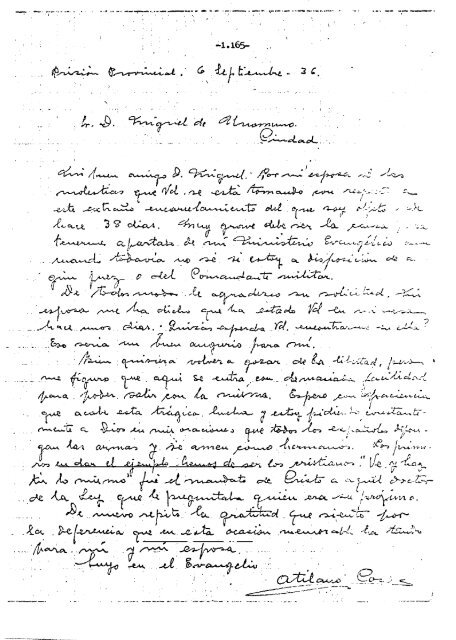 -1.165-
Prisión Provincial. 6 Septiembre - 36.
Sr. D. Miguel de Unamuno.
Ciudad
Mi buen amigo D. Miguel: Por mi esposa sé las
molestias que Vd. se está tomando con respecto a
este extraño encarcelamiento del que soy objeto
hace 38 dias. Muy grave debe ser la causa
tenerme apartado de mi Ministerio Evangélico
cuando todavía no sé si estoy a disposición de al
gún juez o del Comandante militar.
De todos modos le agradezco su solicitud. Mi
esposa me ha dicho que ha estado Vd en mi casa
hace unos dias. Quizás esperaba Vd. encontrarme en ella?
Eso seria un buen augurio para mí.
Bien quisiera volver a gozar de la libertad, pero
me figuro que aqui se entra con demasiada facilidad
para poder salir con la misma. Espero con impaciencia
que acabe esta trágica lucha y estoy pidiendo constante-
mente a Dios en mis oraciones que todos los españoles depon-
gan las armas y se amen como hermanos. Los prime-
ros en dar el ejemplo hemos de ser los cristianos. "Ve, y haz
tú lo mismo" fué el mandato de Cristo a aquel Doctor
de la Ley que le preguntaba quién era su prójimo.
De nuevo repito la gratitud que siento por
la deferencia que en esta ocasión memorable ha tenido
para mí y mi esposa.
Suyo en el Evangelio
Atilano Coco